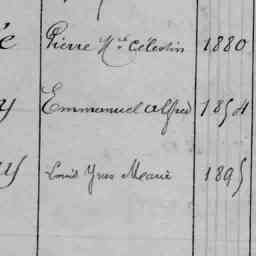 é Pierre Me Célestin 1880
y Emmanuel Alfred 1854
y Louis Yves Marie 1895